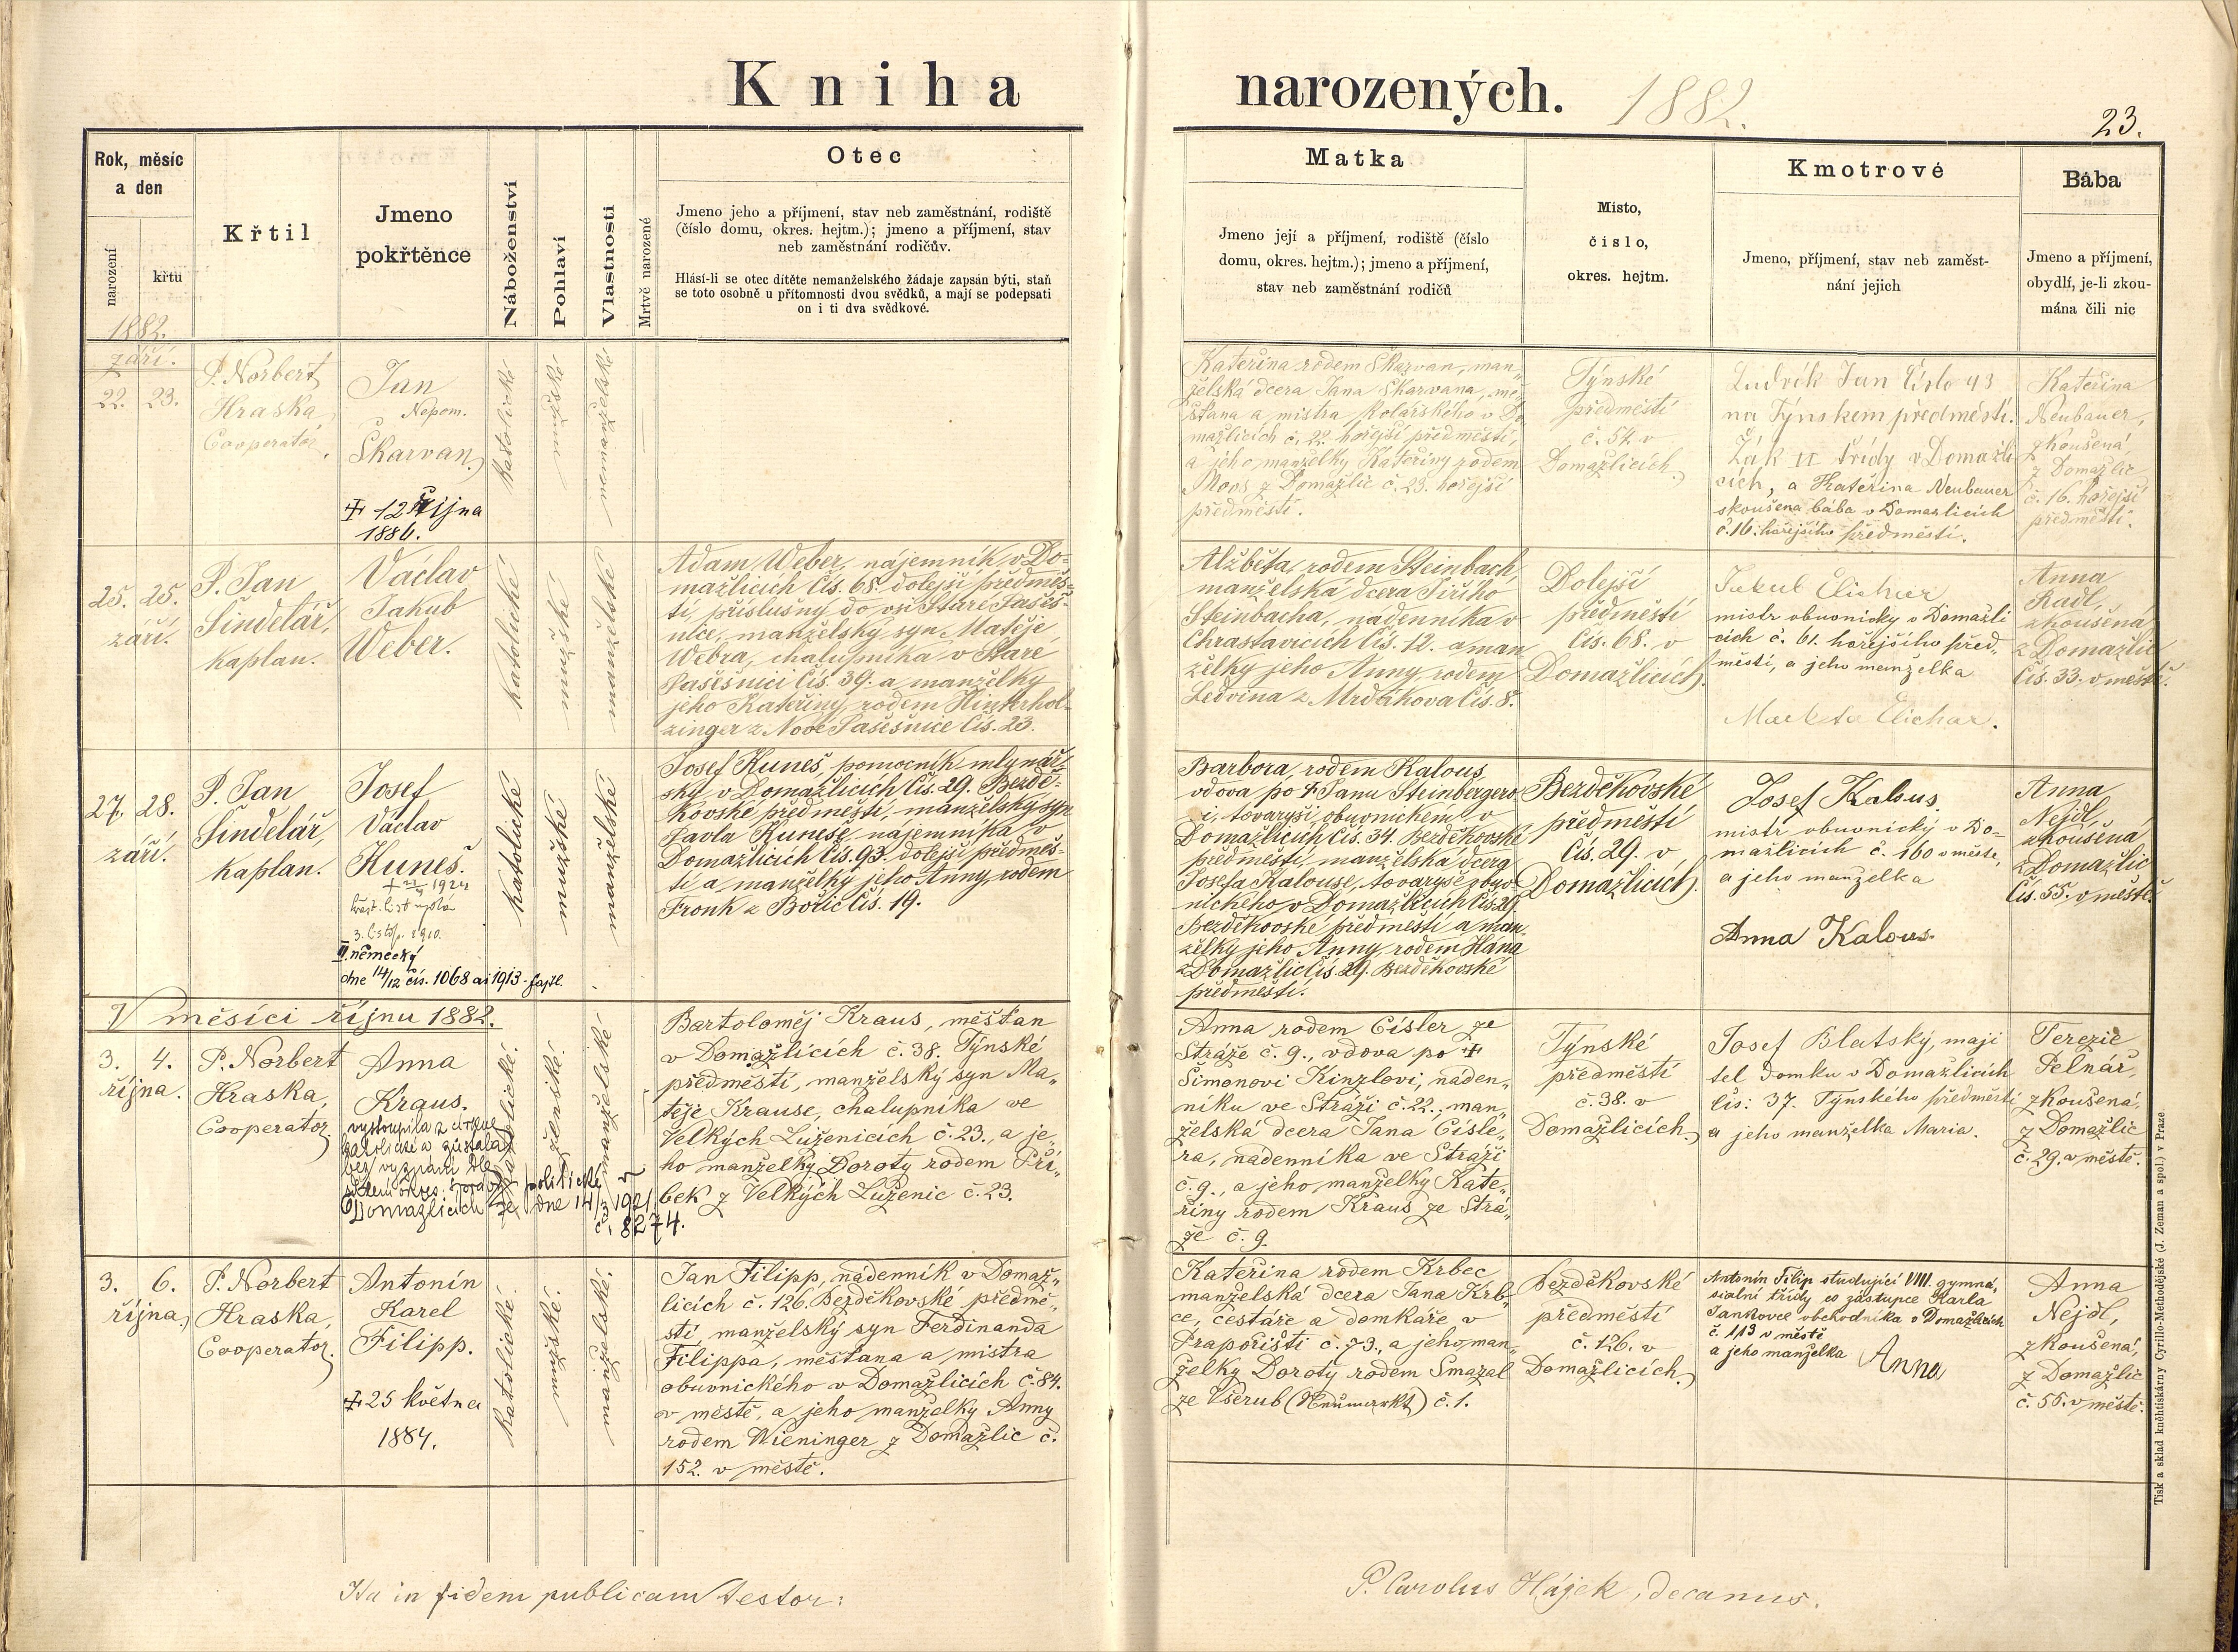 Kniha narozených. 1882.
23.
Rok, měsíc
a den
narození
křtu
Křtil
Jmeno
pokřtěnce
Náboženství
Pohlaví
Vlastnosti
Mrtvě narozené
Otec
Jmeno jeho a příjmení, stav neb zaměstnání, rodiště
(číslo domu, okres. hejtm.); jmeno a příjmení, stav
neb zaměstnání rodičův.
Hlásí-li se otec dítěte nemanželského žádaje zapsán býti, staň
se toto osobně u přítomnosti dvou svědků, a mají se podepsati
on i ti dva svědkové.
Matka
Jmeno její a příjmení, rodiště (číslo
domu, okres. hejtm.); jmeno a příjmení,
stav neb zaměstnání rodičů
Misto,
číslo,
okres. hejtm.
Kmotrové
Jmeno, příjmení, stav neb zaměst-
nání jejich
Bába
Jmeno a příjmení,
obydlí, je-li zkou-
mána čili nic
1882.
září.
22. 23.
P. Norbert
Hraska,
Cooperator.
Jan
Nepom.
Skarvan.
12 října
1886.
katolické
mužské
nemanželské
Kateřina rodem Skarvan, man„
želská dcera Jana Skarvana, mě
šťana a mistra kolářského v Do
mažlicích č. 22. hořejší předměstí,
a jeho manželky Kateřiny rodem
Moos z Domažlic č. 23. hořejší
předměstí.
Týnské
předměstí
č. 54. v
Domažlicích.
Ludvík Jan číslo 43
na Týnskem předměstí.
Žák II třídy v Domažli
cích, a Kateřina Neubauer
skoušena bába v Domažlicích
č. 16. hořejšího předměstí.
Kateřina
Neubauer,
zkoušená,
z Domažlic
č. 16. hořejší
předměstí.
25. 25.
září.
P. Jan
Šindelář,
kaplan.
Václav
Jakub
Weber.
katolické
mužské
manželské
Adam Weber, nájemník v Do-
mažlicích čís. 68. dolejší předměs-
tí, příslušný do vsi Staré Pasěš-
nice, manželský syn Matěje
Webra, chalupníka v Staré
Pasěšnici čís. 39. a manželky
jeho Kateřiny, rodem Hinterhol-
zinger z Nové Pasěšnice čís. 23.
Alžběta, rodem Steinbach,
manželská dcera Jiřího
Steinbacha, nádenníka v
Chrastavicích čís. 12. a man
želky jeho Anny, rodem
Ledvina z Mrdákova čís. 8.
Dolejší
předměstí
čís. 68. v
Domažlicích.
Jakub Elichar
mistr obuvnicky v Domažli
cích č. 61. hořejšího před„
městí, a jeho manželka
Elichar.
Anna
Radl,
zkoušená
z Domažlic
čís. 33. v městě.
27. 28.
září.
P. Jan
Šindelář,
kaplan.
Josef
Václav
Kuneš.
1924
3. listop. 1910.
II. německý
dne 14/12 čís. 1068 ai 1913.
katolické
mužské
manželské
Josef Kuneš, pomocník mlynář-
ský v Domažlicích čís. 29. Bezdě-
kovské předměstí, manželský syn
Pavla Kuneše, nájemníka v
Domažlicích čís. 93. dolejší předměs-
tí a manželky jeho Anny, rodem
Fronk z Bořic čís. 19.
Barbora, rodem Kalous,
vdova po † Janu Steinbergero-
vi, tovaryši obuvnickém v
Domažlicích čís. 34. Bezděkovské
předměstí, manželská dcera
Josefa Kalouse, tovaryše obuv-
nického v Domažlicích čís. 29.
Bezděkovské předměstí a man-
želky jeho Anny, rodem Hána
z Domažlic čís. 29. Bezděkovské
předměstí.
Bezděkovské
předměstí
čís. 29. v
Domažlicích.
Josef Kalous.
mistr obuvnický v Do-
mažlicích č. 160 v městě,
a jeho manželka
Anna Kalous.
Anna
Nejdl,
zkoušená
z Domažlic
čís. 55. v městě.
V měsíci říjnu 1882.
3. 4.
října.
P. Norbert
Hraska,
Cooperator.
Anna
Kraus.
vystoupila z církve
katolické a zůstala
bez vyznání dle
sdělení okres. správy politické v
Domažlicích ze dne 14/3 1921
č. 8274.
katolické.
ženské.
manželské.
Bartoloměj Kraus, měšťan
v Domažlicích č. 38. Týnské
předměstí, manželský syn Ma„
těje Krause, chalupníka ve
Velkých Luženicích č. 23., a je„
ho manželky Doroty rodem Při„
bek z Velkých Luženic č. 23.
Anna rodem Císler ze
Stráže č. 9., vdova po †
Šimonovi Kinzlovi, náden„
níku ve Stráži č. 22., man„
želská dcera Jana Císle„
ra, nádenníka ve Stráži
č. 9., a jeho manželky Kate„
řiny rodem Kraus ze Strá„
že č. 9.
Týnské
předměstí
č. 38. v
Domažlicích.
Josef Blatský, maji
tel domku v Domažlicích
čís: 37. Týnského předměstí
a jeho manželka Maria.
Terezie
Pelnář,
zkoušená,
z Domažlic
č. 29. v městě.
3. 6.
října.
P. Norbert
Hraska,
Cooperator.
Antonín
Karel
Filipp.
25 května
1884.
katolické.
mužské.
manželské.
Jan Filipp, nádenník v Domaž„
licích č. 126. Bezděkovské předmě„
stí, manželský syn Ferdinanda
Filippa, měšťana a mistra
obuvnického v Domažlicích č. 84.
v městě, a jeho manželky Anny
rodem Wieninger z Domažlic č.
152. v městě.
Kateřina rodem Krbec
manželská dcera Jana Krb„
ce, cestáře a domkáře v
Prapořišti č. 73., a jeho man„
želky Doroty rodem Smazal
ze Všerub (Neumarkt) č. 1.
Bezděkovské
předměstí
č. 126. v
Domažlicích.
Antonín Filip studující VIII. gymna„
sialní třídy co zástupce Karla
Jankovce obchodníka v Domažlicích
č. 113 v městě
a jeho manželka Anna
Anna
Nejdl,
zkoušená,
z Domažlic
č. 55. v městě.
Ita in fidem publicam testor:
P. Carolus Hájek, decanus.
Tisk a sklad kněhtiskárny Cyrillo-Methodějské (J. Zeman a spol.) v Praze.